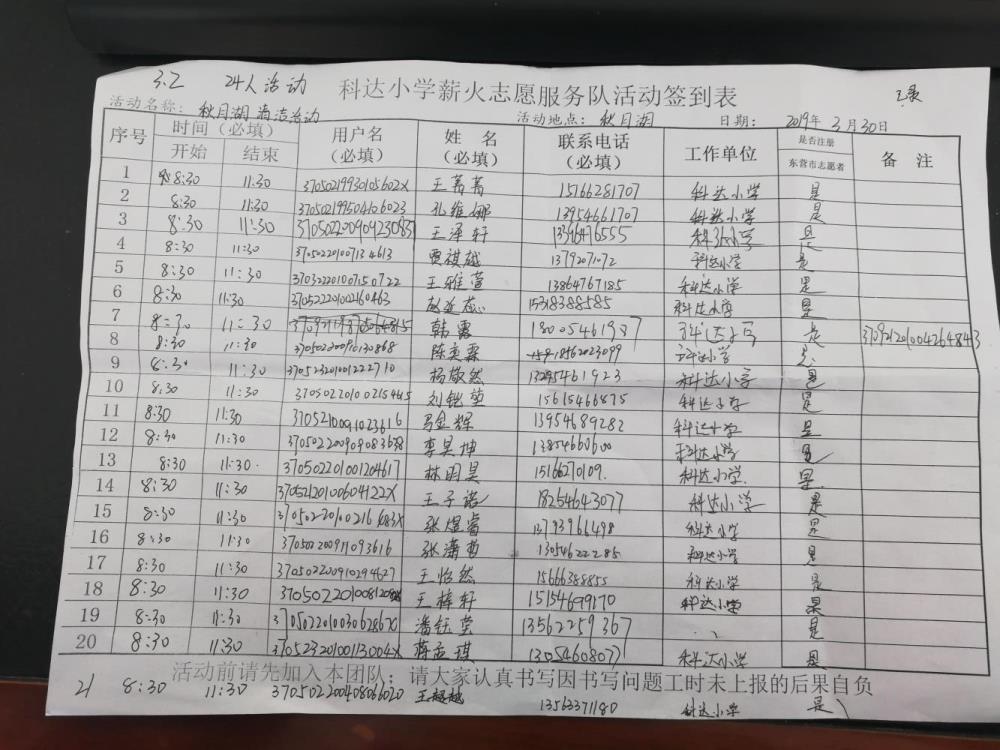 3.2 24人活动 科达小学薪火志愿服务队活动签到表
活动名称: 秋月湖清洁活动 活动地点: 秋月湖 日期: 2019年3月30日
序号 时间(必填) 用户名(必填) 姓名(必填) 联系电话(必填) 工作单位 是否注册东营市志愿者 备注
开始 结束
1 8:30 11:30 37050219930105602X 王菁菁 15166281707 科达小学 是
2 8:30 11:30 370502199504106023 孔维娜 13954661707 科达小学 是
3 8:30 11:30 王泽轩 13396476555 科达小学 是
4 8:30 11:30 370502201007134613 贾祺越 13792071072 科达小学 是
5 8:30 11:30 370322201007150722 王雅萱 13864767185 科达小学 是
6 8:30 11:30 370522201002160463 15318388585 科达小学 是
7 8:30 11:30 韩露 18005461987 科达小学 是 370921201004264843
8 8:30 11:30 370502200910130868 陈奕霖 18562023099 科达小学 是
9 8:30 11:30 370523201001222710 杨敬然 13295461923 科达小学 是
10 8:30 11:30 370502201002154415 刘铠堃 15615466875 科达小学 是
11 8:30 11:30 37052120091023616 马金辉 13954689282 科达小学 是
12 8:30 11:30 370502200909083638 李昊坤 13854660600 科达小学 是
13 8:30 11:30. 370502201001204617 林明昊 15166270109. 科达小学. 是
14 8:30 11:30 37052120100604122X 王子诺 18254643077 科达小学 是
15 8:30 11:30 张煜睿 13793961498 科达小学 是
16 8:30 11:30 370502200911093616 张潇哲 13054622285 科达小学 是
17 8:30 11:30 370502200910294627 王怡然 15666388855 科达小学 是
18 8:30 11:30 王梓轩 15154699170 科达小学 是
19 8:30 11:30 37050220100306286X 潘钰莹 13562259367 是
20 8:30 11:30 37052320100113004X 蒋孟琪 13054608077 科达小学 是
活动前请先加入本团队; 请大家认真书写因书写问题工时未上报的后果自负
21 8:30 11:30 370502200408066020 王超越 13563371180 科达小学 是